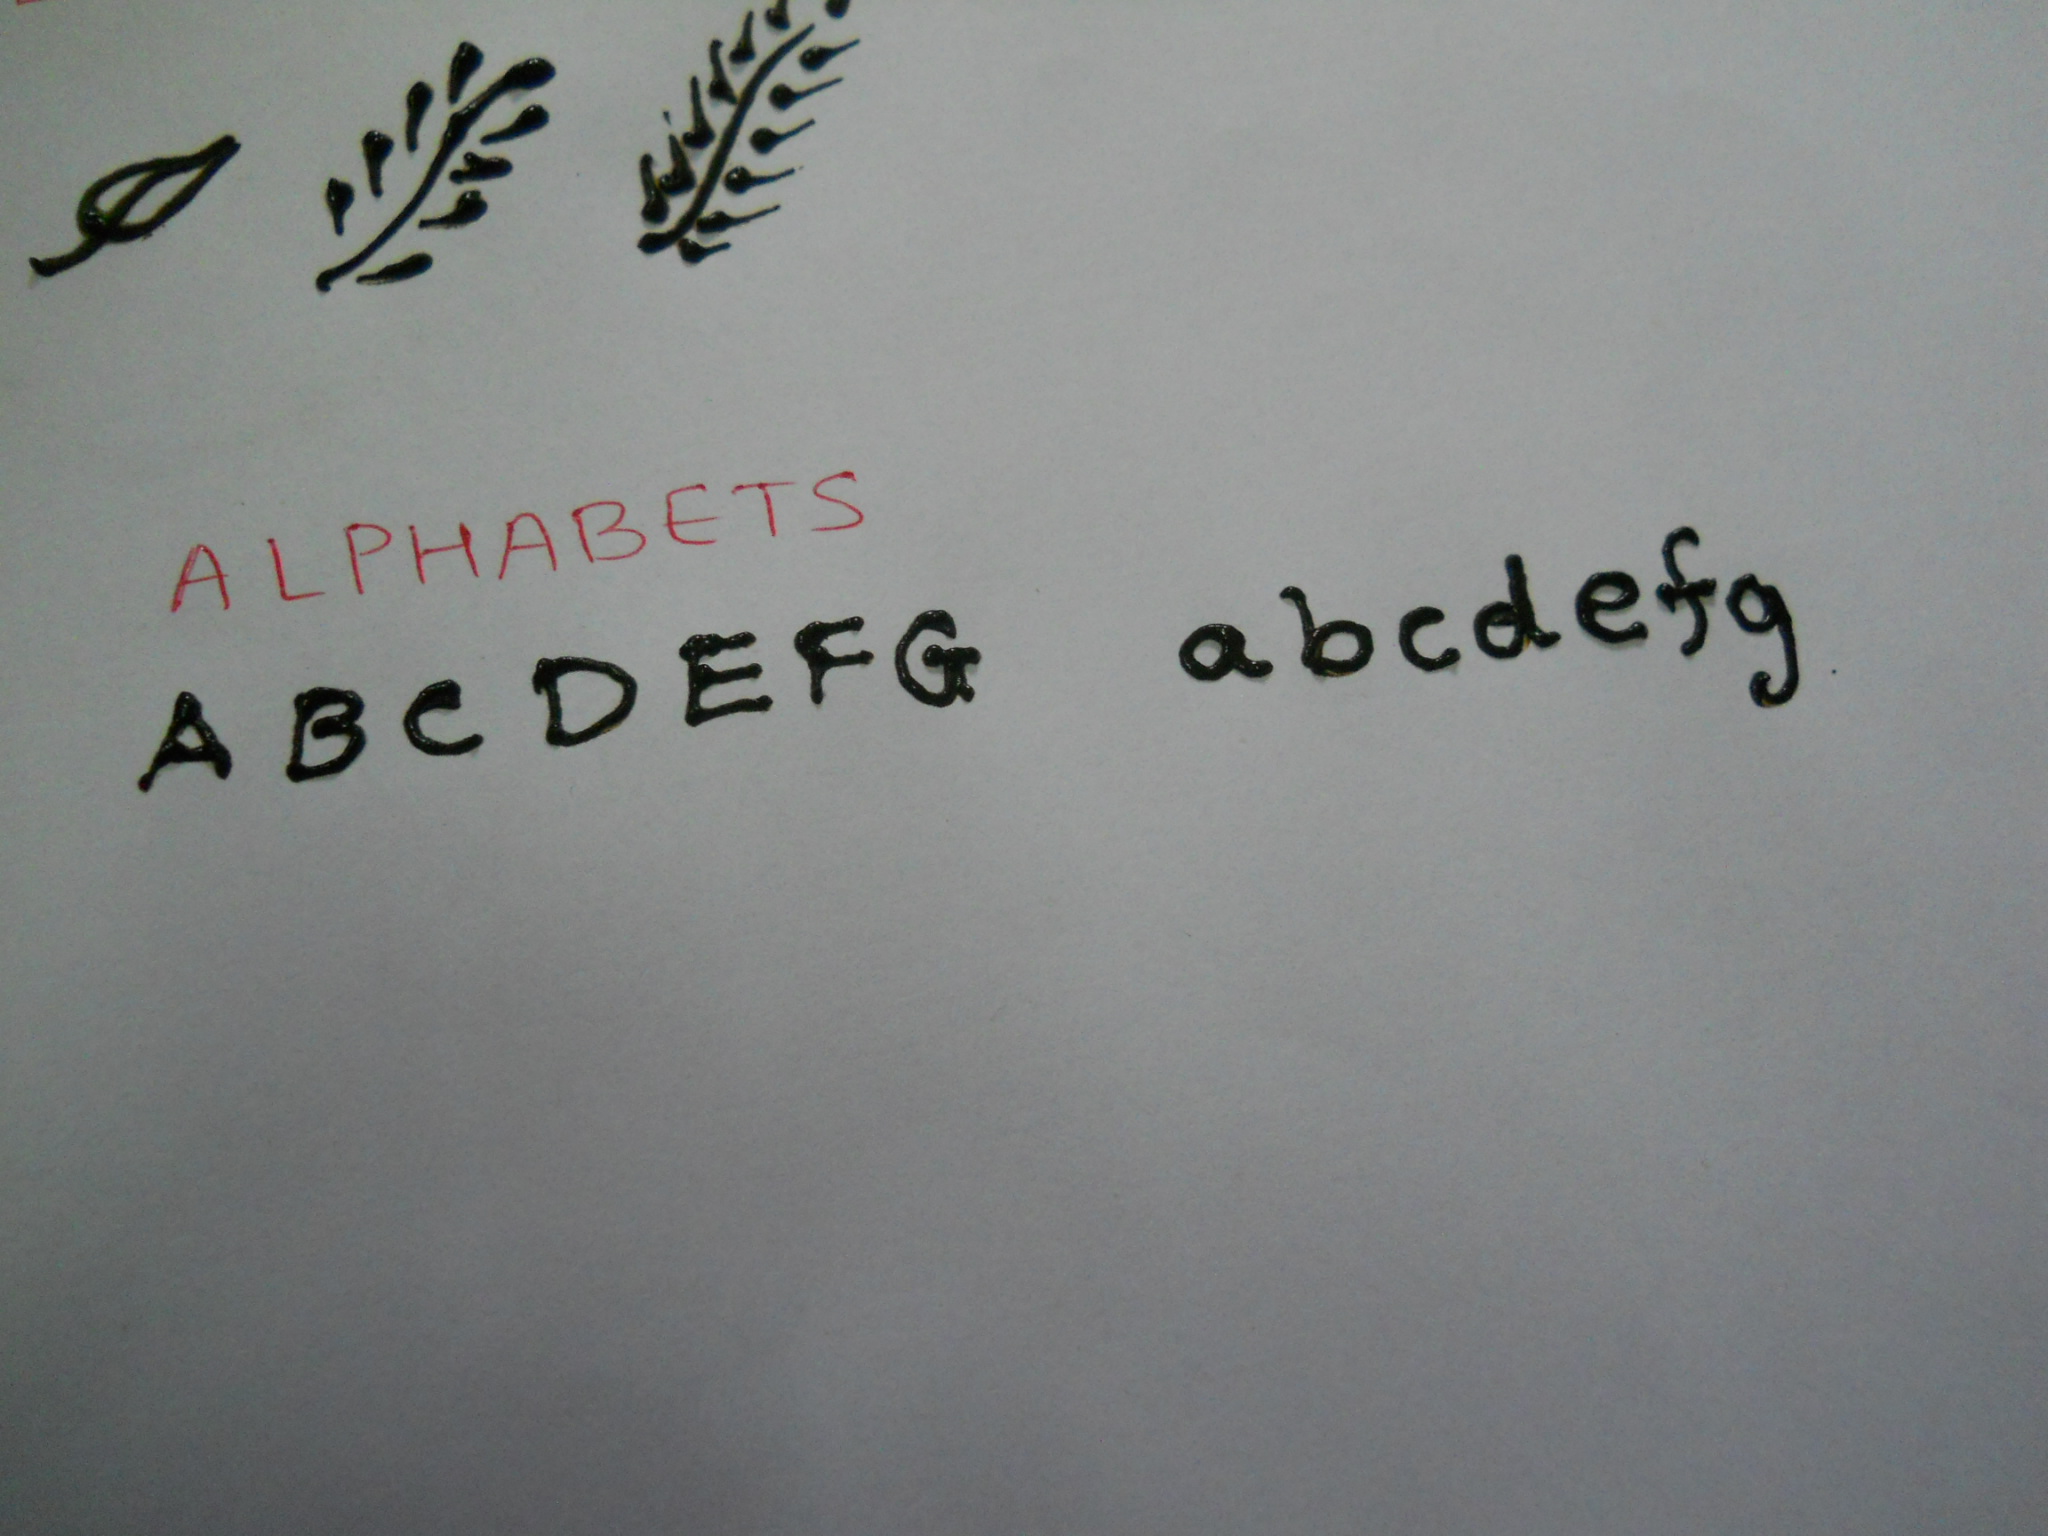 ALPHABETS
A B C D E F G abcdefg